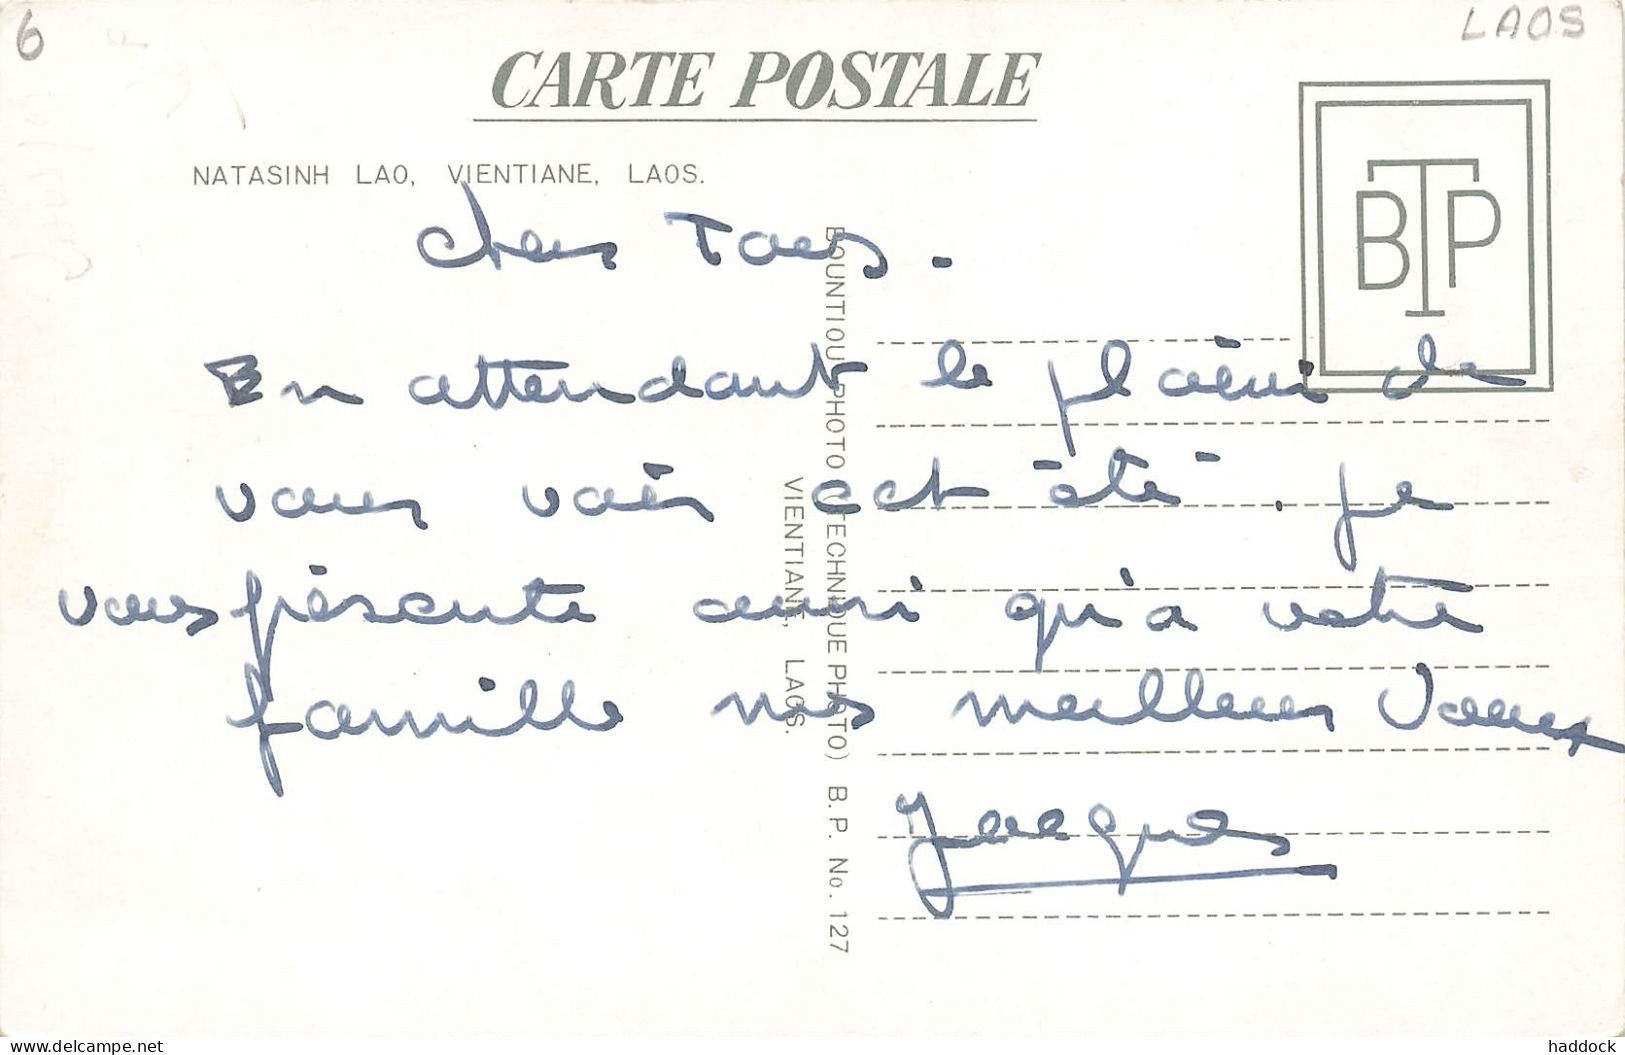 6
LAOS
CARTE POSTALE
NATASINH LAO, VIENTIANE, LAOS.
BTP
Chers Tous.
En attendant le plaisir de
vous voir cet été. Je
vous présente ainsi qu'à votre
famille mes meilleurs Voeux
Jacques
BOUNTIOU PHOTO (TECHNIQUE PHOTO) B.P. No. 127
VIENTIANE, LAOS.
delcampe.net
haddock